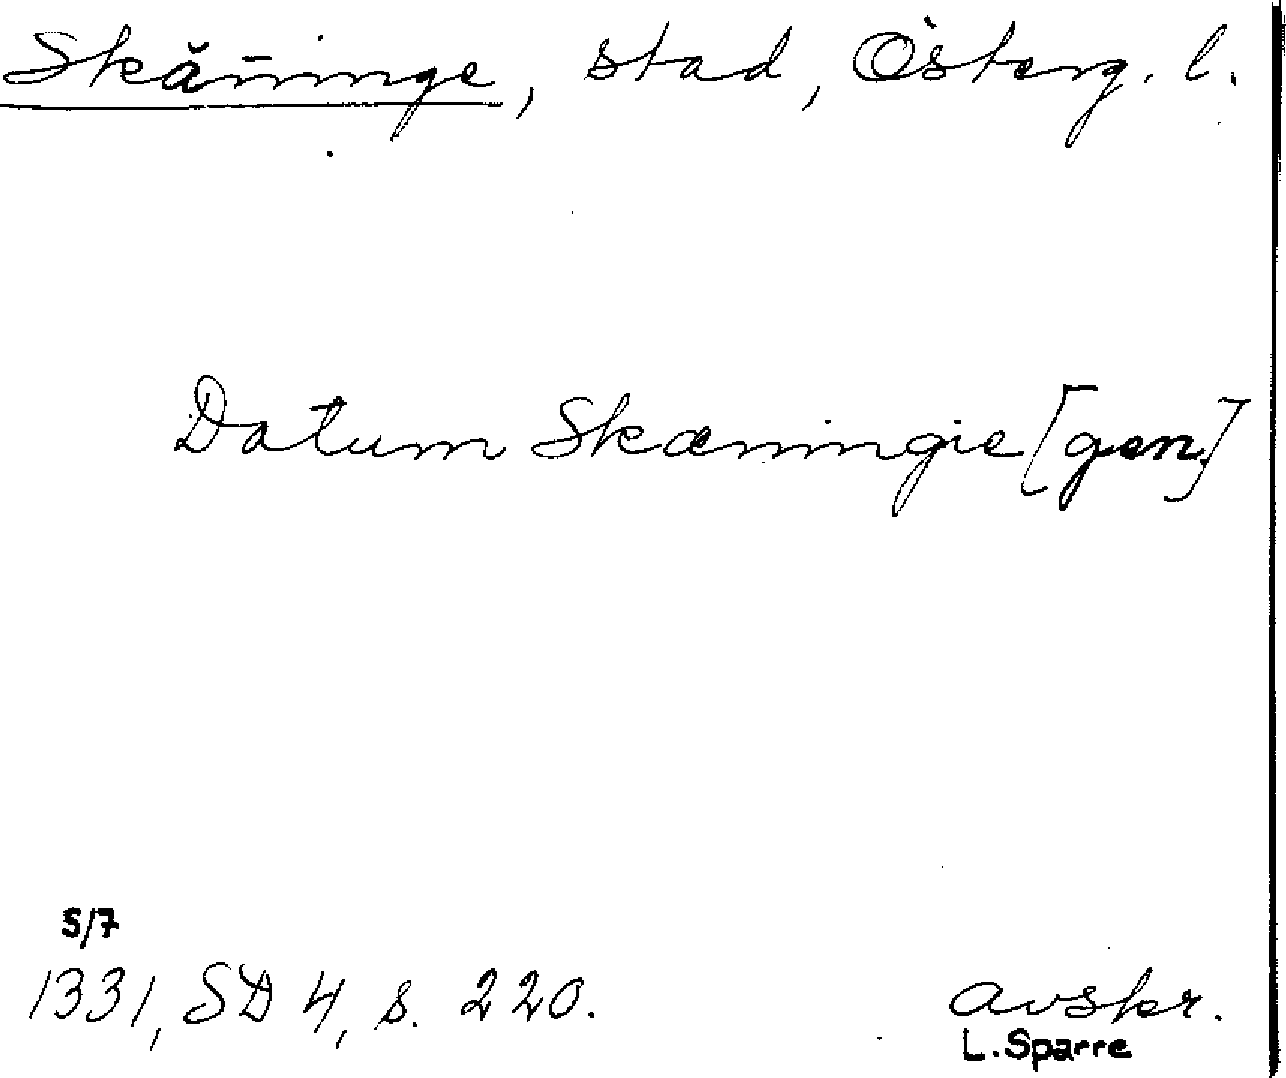 Skänninge, stad, Österg. l.
Datum Skæningie [gen.]
5/7
1331, SD 4, s. 220.
avskr.
L. Sparre